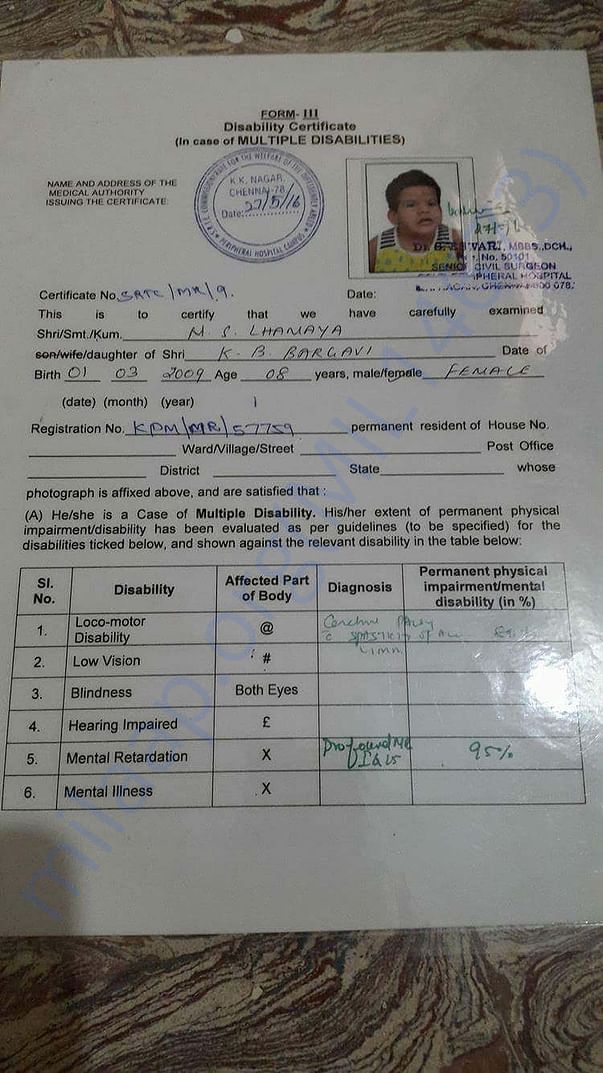 FORM- III
Disability Certificate
(In case of MULTIPLE DISABILITIES)
NAME AND ADDRESS OF THE
MEDICAL AUTHORITY
ISSUING THE CERTIFICATE:
K.K. NAGAR,
CHENNAI-78
Date: 27/5/16
PERIPHERAL HOSPITAL CAMPUS
MBBS.,DCH.,
No. 50101
SENIOR CIVIL SURGEON
PERIPHERAL HOSPITAL
Certificate No. SRTC/MR/9. Date:
This is to certify that we have carefully examined
Shri/Smt./Kum. M. S. LHAMAYA
son/wife/daughter of Shri K. B. BARGAVI Date of
Birth 01 03 2009 Age 08 years, male/female FEMALE
(date) (month) (year)
Registration No. KPM/MR/57759 permanent resident of House No.
Ward/Village/Street Post Office
District State whose
photograph is affixed above, and are satisfied that :
(A) He/she is a Case of Multiple Disability. His/her extent of permanent physical
impairment/disability has been evaluated as per guidelines (to be specified) for the
disabilities ticked below, and shown against the relevant disability in the table below:
Sl. No. Disability Affected Part of Body Diagnosis Permanent physical impairment/mental disability (in %)
1. Loco-motor Disability @
2. Low Vision #
3. Blindness Both Eyes
4. Hearing Impaired £
5. Mental Retardation X Profound MR 95%
6. Mental Illness X